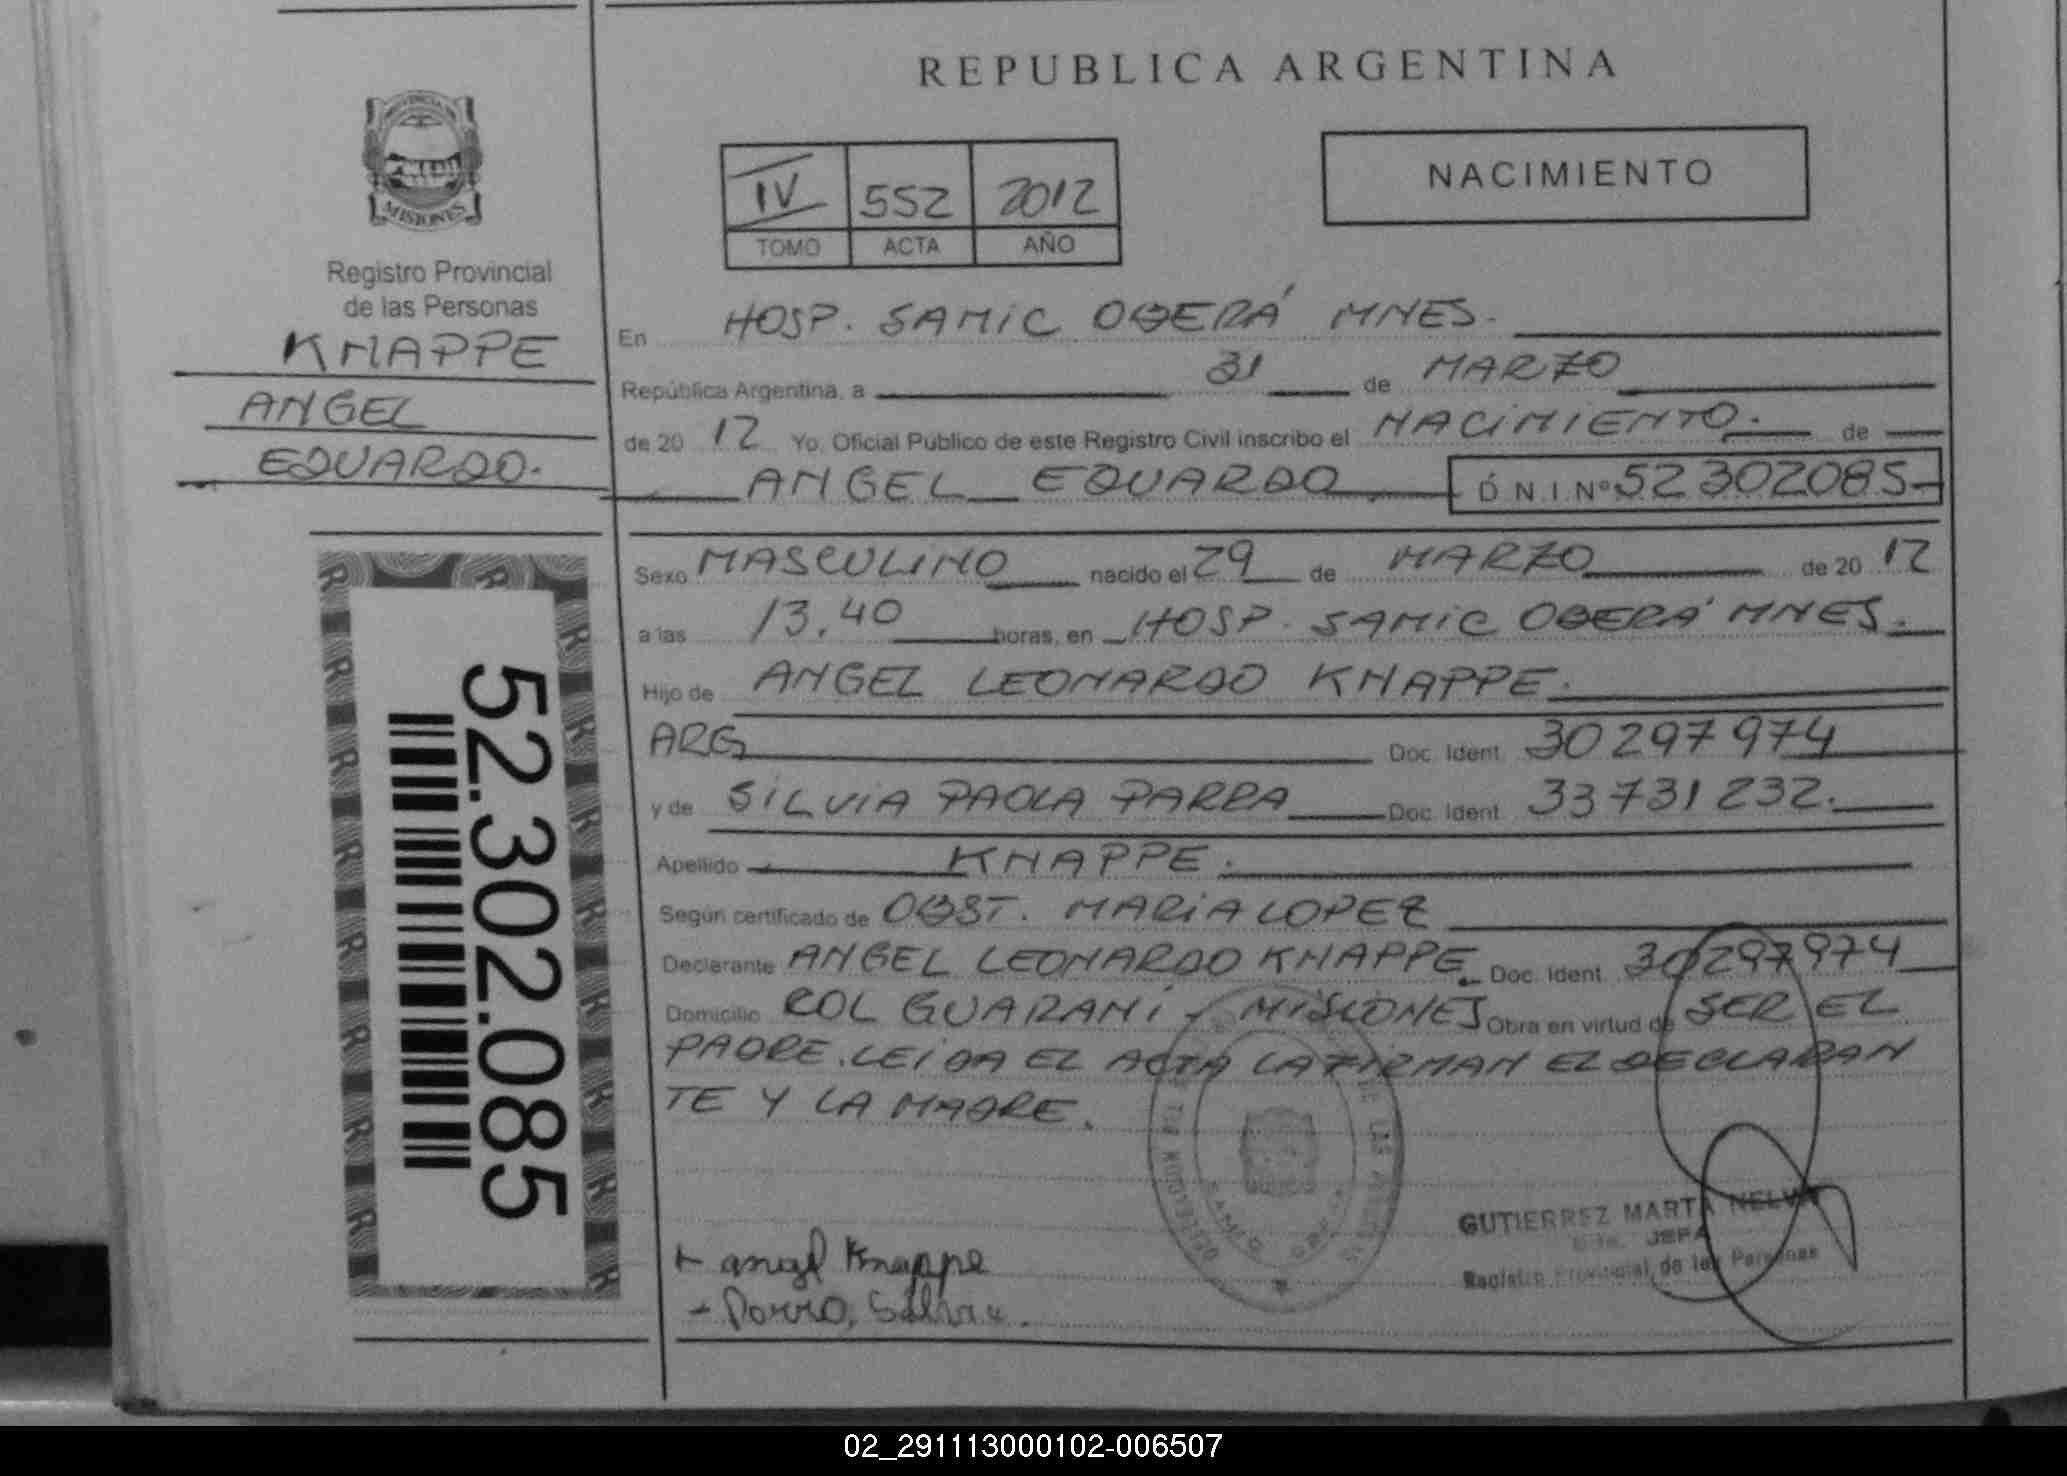 REPUBLICA ARGENTINA
PROVINCIA DE
MISIONES
Registro Provincial
de las Personas
KNAPPE
ANGEL
EDUARDO.
52.302.085
IV 552 2012
TOMO ACTA AÑO
NACIMIENTO
En HOSP. SAMIC OBERÁ MNES.
República Argentina, a 31 de MARZO
de 20 12 Yo, Oficial Público de este Registro Civil inscribo el NACIMIENTO. de
ANGEL EDUARDO D.N.I.Nº 52302085
Sexo MASCULINO nacido el 29 de MARZO de 20 12
a las 13,40 horas, en HOSP. SAMIC OBERÁ MNES.
Hijo de ANGEL LEONARDO KNAPPE.
ARG Doc. Ident. 30297974
y de SILVIA PAOLA PARRA Doc. Ident. 33731232.
Apellido KNAPPE.
Según certificado de OBST. MARIA LOPEZ
Declarante ANGEL LEONARDO KNAPPE. Doc. Ident. 30297974
Domicilio COL GUARANI - MISIONES Obra en virtud de SER EL
PADRE. LEIDA EL ACTA LA FIRMAN EL DECLARAN
TE Y LA MADRE.
GUTIERREZ MARTA NELVA
JEFA
Registro Provincial de las Personas
angel Knappe
Parra, Silvia.
02_291113000102-006507